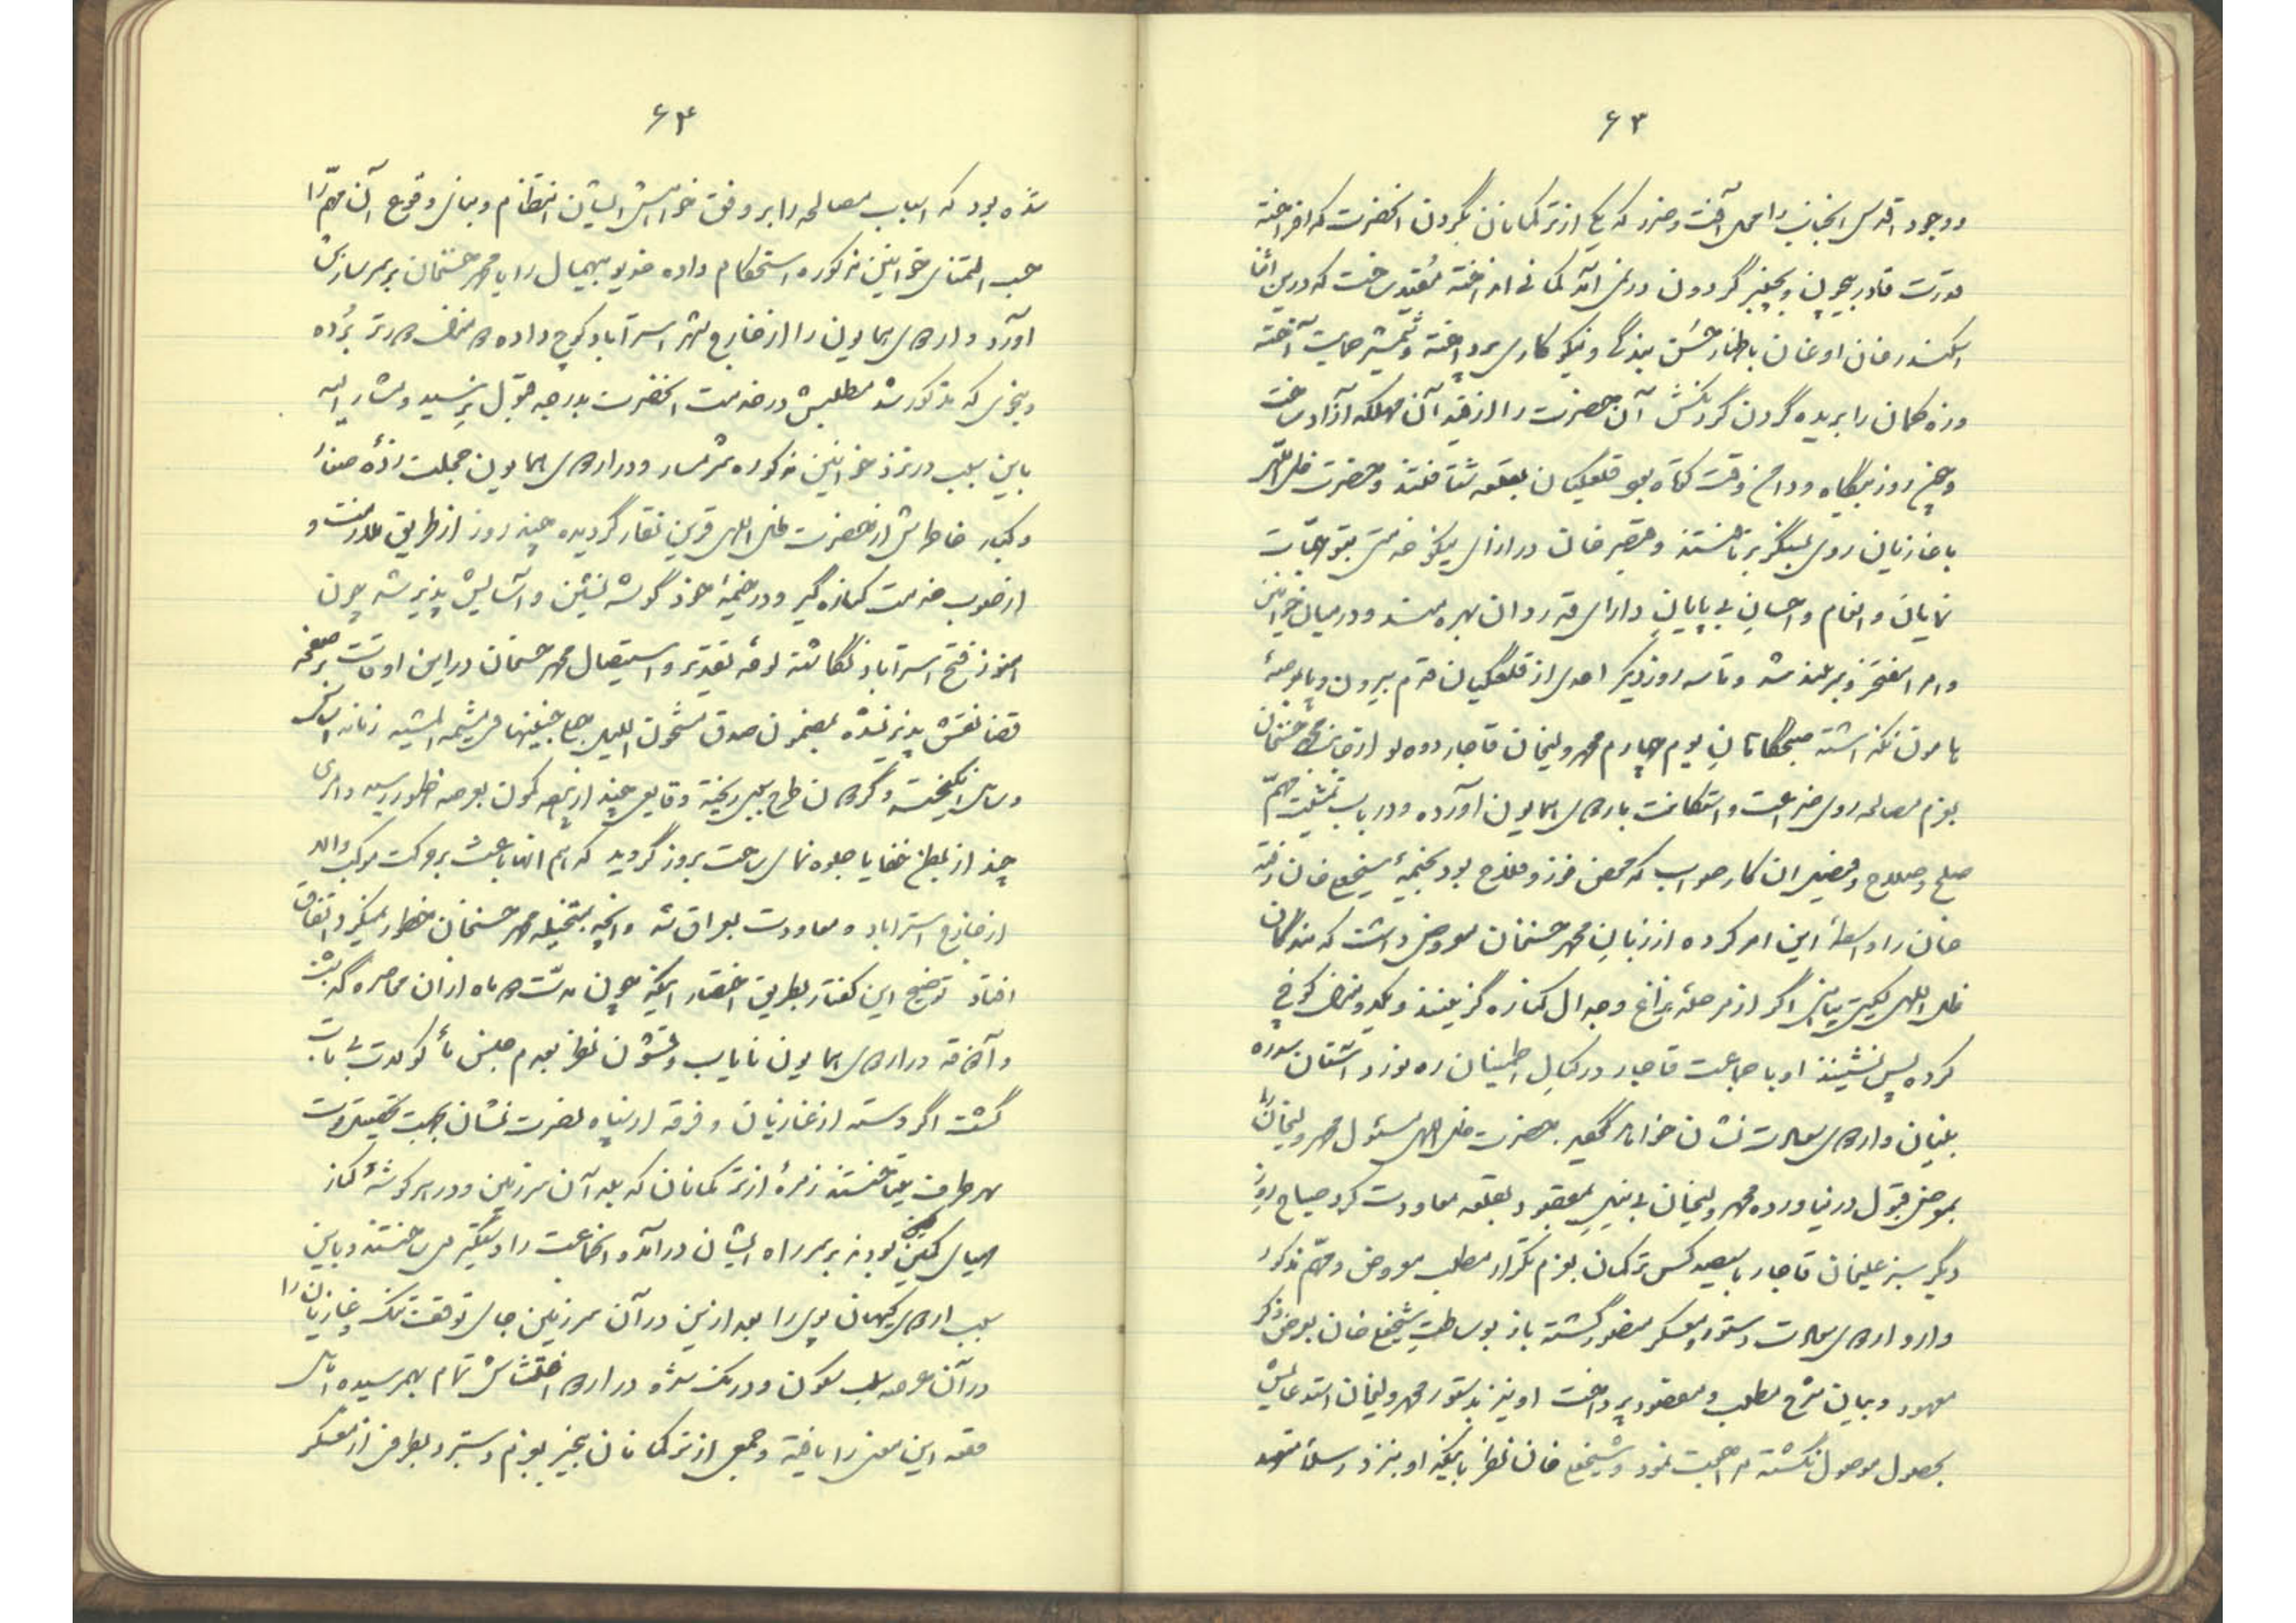 ۶۳
و وجود اقدس انجناب را محل آفت و ضرر که یکی از ترکمانان بگردن انحضرت که افراخته
قدرت قادر بیچون و چنبر گردون در بند آید کمانی انداخته مقید ساخت که درین اثنا
اسکندرخان اوغان باظهار حسن بندگی و نیکوکاری پرداخته و شمشیر حمایت آخته
و زه کمان را بریده گردن گردنکش آن حضرت را از قید آن مهلکه آزاد ساخت
و چون روز بیگاه و دامن وقت کوتاه بود قلعگیان بقلعه شتافتند و حضرت ظل اللهی
با غازیان روی بلشگر برتافتند و خان در ازای نیکو خدمتی بتوجهات
نمایان و انعام و احسان بی پایان دارای قدردان بهره مند و در میان خوانین
و امرا مفتخر و سربلند شد و تا سه روز دیگر احدی از قلعگیان قدم بیرون و پا بعرصهٔ
هامون نگذاشته صبحگاهان یوم چهارم محمد ولیخان قاجار دوه لو از جانب محمد حسنخان
بعزم مصالحه روی ضراعت و استکانت باردوی همایون آورده و در باب تمشیت مهم
صلح و صلاح و فیصل آن کار صواب که محض فوز و فلاح بود بخیمهٔ شیخعلی خان رفته
خان را واسطهٔ این امر کرده از زبان محمد حسنخان معروض داشت که بندگان
ظل اللهی اگر از مرحلهٔ نزاع و جدال کناره گزینند و یکدو منزل کوچ
کرده پس نشینند او با جماعت قاجار در کمال اطمینان ره نورد آستان سدره
بنیان و اردوی سعادت نشان خواهد گردید حضرت ظل اللهی مسئول محمد ولیخان را
بموضع قبول در نیاورده محمد ولیخان بی نیل مقصود بقلعه معاودت کرد صباح روز
دیگر سبزعلیخان قاجار با سیصد کس ترکمان بعزم تکرار مطلب معروض و مهم مذکور
وارد اردوی سعادت دستور و معسکر منصور گشته باز بوساطت شیخعلی خان بعرض ذکر
معهود و بیان شرح مطلب و مقصود پرداخت او نیز بدستور محمد ولیخان استدعایش
بحصول موصول نگشته مراجعت نمود و شیخعلی خان نظر باینکه او نیز در مسئله متعهد
۶۴
شده بود که اسباب مصالحه را بر وفق خواهش ایشان انتظام و مبانی وقوع آن مهم را
حسب التمنای خوانین مذکوره استحکام داده خدیو بیهمال را با محمد حسنخان بر سر سازش
آورد و اردوی همایون را از خارج شهر استرآباد کوچ داده دو منزل دورتر برده
و بنحوی که مذکور شد مطلبش در خدمت انحضرت بدرجه قبول نرسید و مشارالیه
باین سبب در نزد خوانین مذکوره شرمسار و در اردوی همایون خجلت زده صغار
و کبار خاطرش از حضرت ظل اللهی قرین نقار گردیده چند روز از طریق ملازمت و
از صوب خدمت کناره گیر و در خیمهٔ خود گوشه نشین و آسایش پذیر شد چون
هنوز فتح استرآباد نگاشته لوحهٔ تقدیر و استیصال محمد حسنخان دراین اوقات بر صفحه
قضا نقش پذیر نشده بمضمون صدق مشحون اللیل زمانه
انگیخت و گردون طرح ریخته وقایعی چند از کون بعرصه ظهور رسید و امری
چند از مطلع خفایا جلوه نمای ساحت بروز گردید که اهم آنها باعث بر حرکت موکب والا
از خارج استرآباد و معاودت بعراق شد و انچه بمتخیله محمد حسنخان خطور نمیکرد اتفاق
افتاد توضیح این گفتار بطریق اختصار اینکه چون مدت دو ماه از آن محاصره گذشت
و آذوقه در اردوی همایون نایاب و قشون نظر بعدم جنس مأکولات بی تاب
گشت اگر دسته از غازیان و فرقه از سپاه نصرت نشان بجهت
بهر طرف میتاختند زمرهٔ از ترکمانان که بلد آن سرزمین و در هر گوشهٔ کنار
مهیای کمین بودند بر سر راه ایشان درآمده انجماعت را دستگیر میساختند و باین
سبب اردوی کیهان پوی را بعد ازین در آن سرزمین جای توقف تنگ و غازیان را
در آن عرصه سلب سکون و درنگ شده در اردو اغتشاش تمام بهم رسیده اهالی
قلعه این معنی را یافته و جمعی از ترکمانان بیخبر بعزم دستبرد بطرفی از معسکر